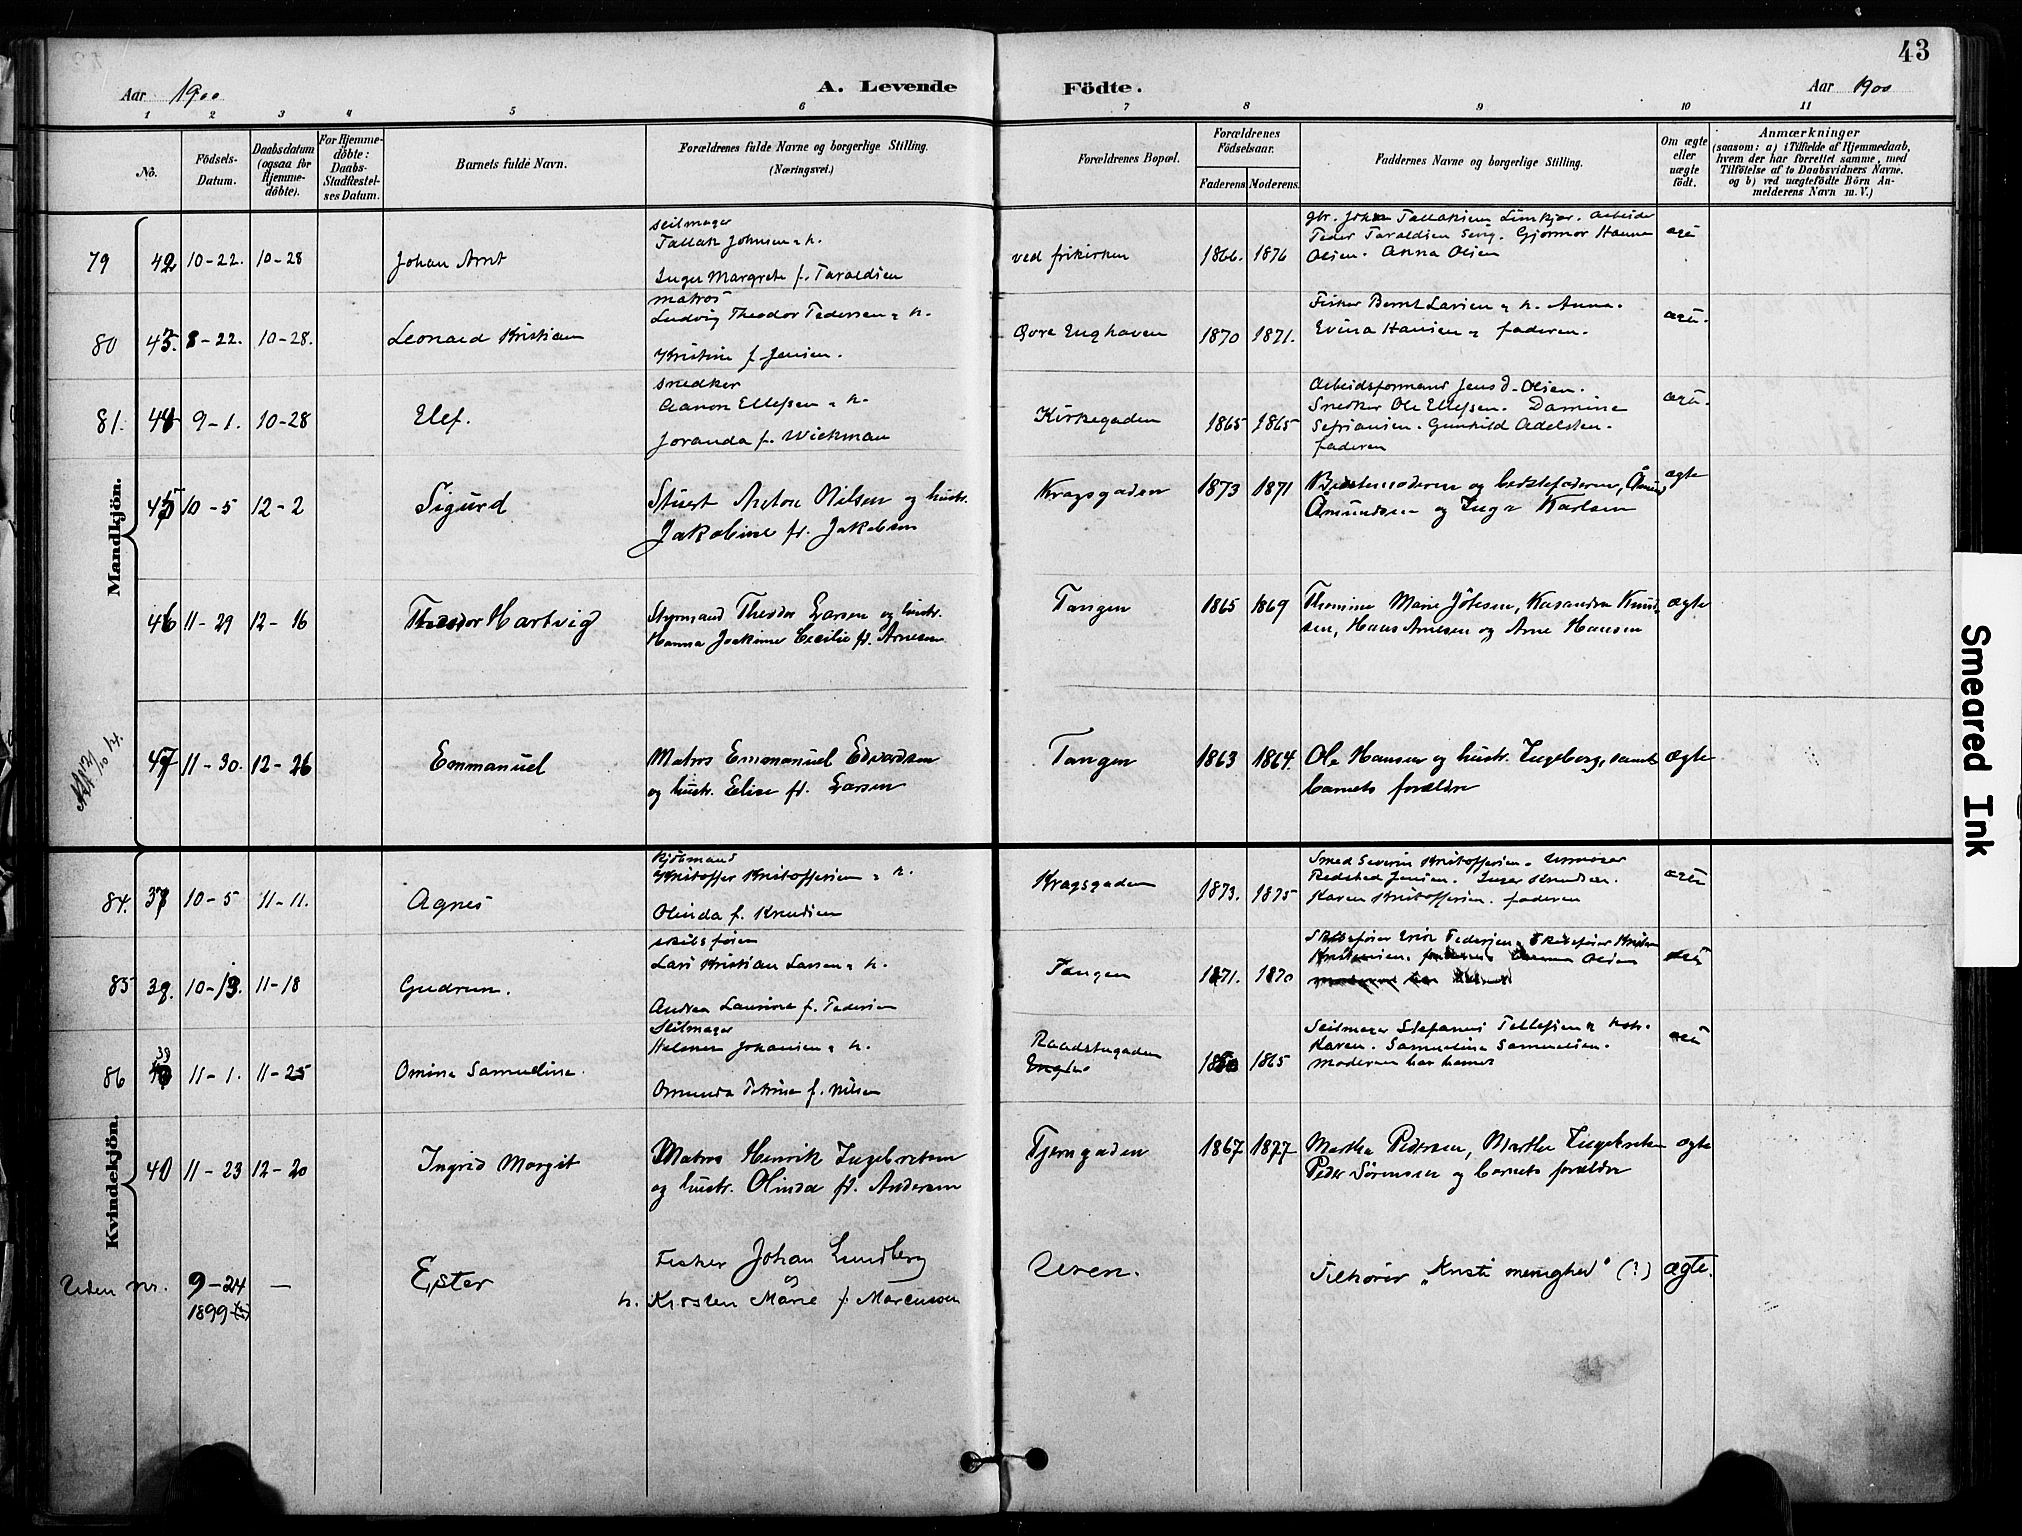 43
Aar 1900
A. Levende Födte.
Aar 1900
1 2 3 4 5 6 7 8 9 10 11
No.
Födsels-Datum.
Daabsdatum (ogsaa for Hjemme-döbte).
For Hjemme-döbte: Daabs-Stadfæstel-ses Datum.
Barnets fulde Navn.
Forældrenes fulde Navne og borgerlige Stilling. (Næringsvei.)
Forældrenes Bopæl.
Forældrenes Födselsaar.
Faderens. Moderens.
Faddernes Navne og borgerlige Stilling.
Om ægte eller uægte födt.
Anmærkninger
(saasom: a) i Tilfælde af Hjemmedaab, hvem der har forrettet samme, med Tilföielse af to Daabsvidners Navne, og b) ved uægtefödte Börn An-melderens Navn m. V.)
Mandkjön.
79 42 10-22. 10-28 Johan Arnt
seilmager
Tallak Johnsen & h.
Inger Margrete f. Taraldsen
ved frikirken 1866. 1876
Peder Taraldsen
Olsen. Anna Olsen
80 43. 8-22. 10-28. Leonard Kristian
matros
Ludvig Theodor Pedersen & h.
Kristine f. Jensen.
Øvre Enghaven 1870 1871.
Fisker Bernt Larsen & h. Anna.
Evina Hansen & faderen.
81. 44 9-1. 10-28 Elef.
snedker
Aanon Ellefsen & h.
Joranda f. Wickman
Kirkegaden 1865 1865
Arbeidsformand Jens J. Olsen.
Snedker Ole Ellefsen.
Gunhild Adelsten.
faderen
45 10-5 12-2 Sigurd
Stuert Anton Nilsen og hustr.
Jakobine fd. Jakobsen
Kragsgaden 1873 1871
Bestemoderen og bedstefaderen,
Åmundsen og Inga Karlsen
ægte
46 11-29 12-16 Theodor Hartvig
Styrmand Theodor Larsen og hustr.
Hanna Joakime Cecilie fd. Arnesen
Tangen 1865 1869
Thomine Marie Jølesen, Kasandra Knud-
sen, Hans Arnesen og Arne Hansen
ægte
47 11-30. 12-26 Emmanuel
Matros Emmanuel Edvardsen
og hustr. Elise fd. Larsen
Tangen 1863 1864.
Ole Hansen og hustr. Ingeborg, samt
barnets forældre
ægte
Kvindekjön.
84. 37 10-5 11-11. Agnes
Kristoffer Kristoffersen & h.
Olinda f. Knudsen
Kragsgaden 1873. 1875
Smed Severin Kristoffersen.
Redsted Jensen. Inger Knudsen.
Karen Kristoffersen. faderen
85 38. 10-13. 11-18 Gudrun.
skibsfører
Lars Kristian Larsen & h.
Andrea Laurine f. Pedersen
Tangen 1871. 1870
86 39 11-1. 11-25 Omine Samudine.
Seilmager
Helmer Johansen & h.
Omunda Petrine f. Nilsen
Raadstugaden 1865
Seilmager Stefanus Tellefsen & hstr.
Karen. Samueline Samuelsen.
moderen har barnet
40 11-23 12-20 Ingrid Margit
Matros Henrik Ingebretsen
og hustr. Olinda fd. Andersen
Tjerngaden 1867 1877
Martha Pedersen, Marthe Ingebretsen
Peder Sørensen og barnets forældre
ægte
Uden nr. 9-24 1899 — Ester
Fisker Johan Lundberg
og
h. Kirsten Marie f. Marcussen
Uren.
Tilhører „Kristi menighed" (?) ægte.
Smeared Ink